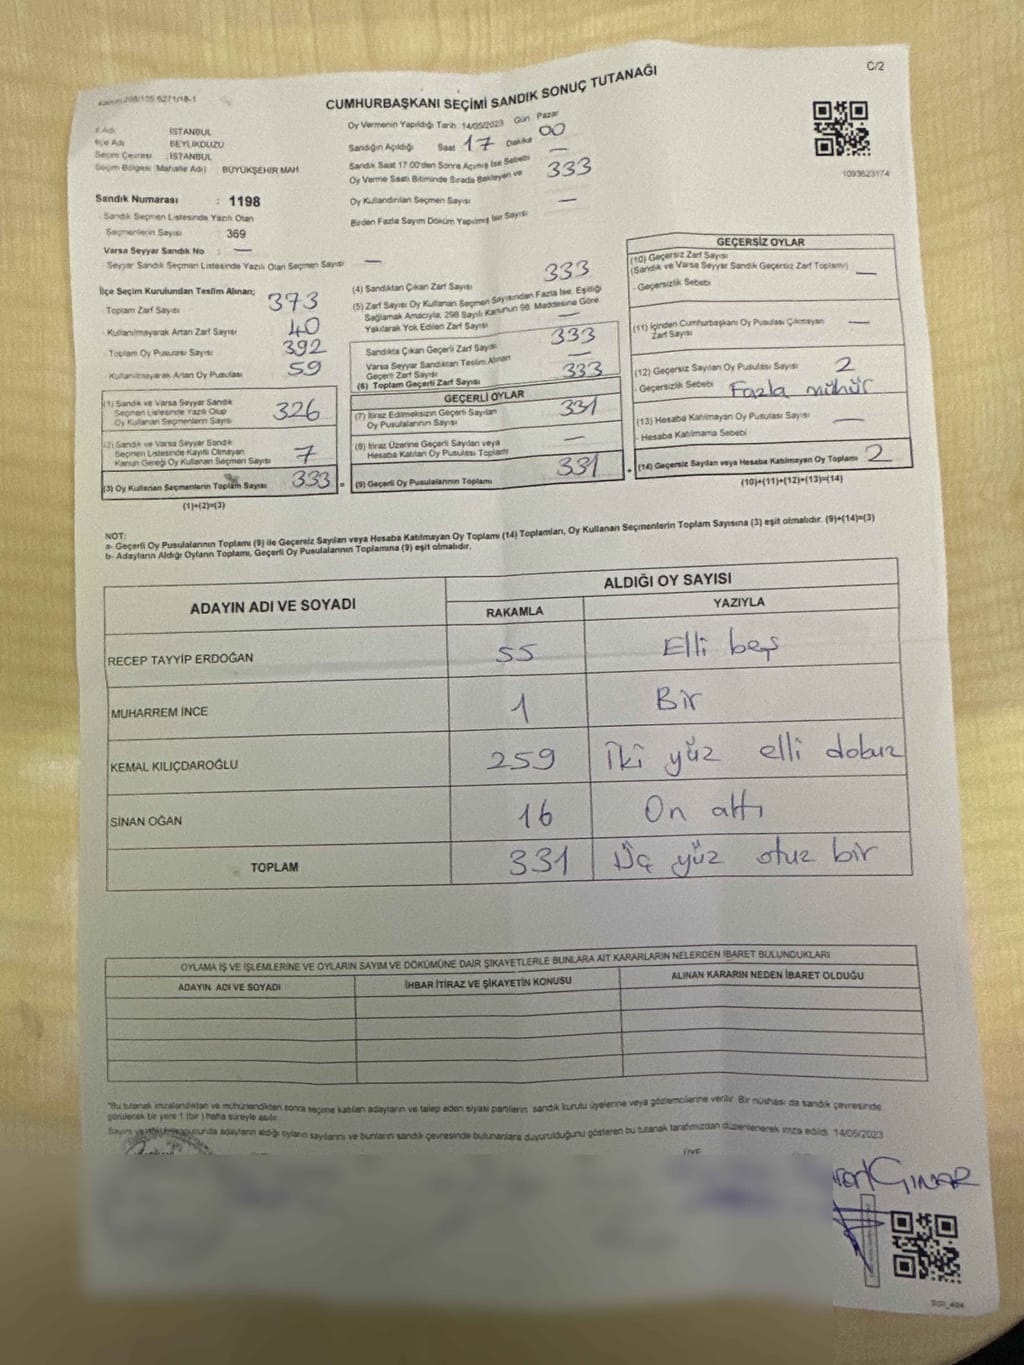 C/2
Kanun 298/105 6271/18-1
CUMHURBAŞKANI SEÇİMİ SANDIK SONUÇ TUTANAĞI
1093623174
İl Adı İSTANBUL
İlçe Adı BEYLİKDÜZÜ
Seçim Çevresi : İSTANBUL
Seçim Bölgesi (Mahalle Adı) BÜYÜKŞEHİR MAH
Sandık Numarası : 1198
Sandık Seçmen Listesinde Yazılı Olan
Seçmenlerin Sayısı 369
Varsa Seyyar Sandık No : —
Seyyar Sandık Seçmen Listesinde Yazılı Olan Seçmen Sayısı —
İlçe Seçim Kurulundan Teslim Alınan;
Toplam Zarf Sayısı 373
Kullanılmayarak Artan Zarf Sayısı 40
Toplam Oy Pusulası Sayısı 392
Kullanılmayarak Artan Oy Pusulası 59
(1) Sandık ve Varsa Seyyar Sandık
Seçmen Listesinde Yazılı Olup
Oy Kullanan Seçmenlerin Sayısı 326
(2) Sandık ve Varsa Seyyar Sandık
Seçmen Listesinde Kayıtlı Olmayan
Kanun Gereği Oy Kullanan Seçmen Sayısı 7
(3) Oy Kullanan Seçmenlerin Toplam Sayısı 333 =
(1)+(2)=(3)
Oy Vermenin Yapıldığı Tarih :14/05/2023 Gün : Pazar
Sandığın Açıldığı Saat 17 Dakika 00
Sandık Saat 17:00'den Sonra Açılmış İse Sebebi —
Oy Verme Saati Bitiminde Sırada Bekleyen ve 333
Oy Kullandırılan Seçmen Sayısı —
Birden Fazla Sayım Döküm Yapılmış İse Sayısı
(4) Sandıktan Çıkan Zarf Sayısı 333
(5) Zarf Sayısı Oy Kullanan Seçmen Sayısından Fazla İse, Eşitliği
Sağlamak Amacıyla, 298 Sayılı Kanunun 98. Maddesine Göre
Yakılarak Yok Edilen Zarf Sayısı —
Sandıkta Çıkan Geçerli Zarf Sayısı 333
Varsa Seyyar Sandıktan Teslim Alınan
Geçerli Zarf Sayısı —
(6) Toplam Geçerli Zarf Sayısı 333
GEÇERLİ OYLAR
(7) İtiraz Edilmeksizin Geçerli Sayılan
Oy Pusulalarının Sayısı 331
(8) İtiraz Üzerine Geçerli Sayılan veya
Hesaba Katılan Oy Pusulası Toplamı —
(9) Geçerli Oy Pusulalarının Toplamı 331 +
GEÇERSİZ OYLAR
(10) Geçersiz Zarf Sayısı
(Sandık ve Varsa Seyyar Sandık Geçersiz Zarf Toplamı) —
- Geçersizlik Sebebi
(11) İçinden Cumhurbaşkanı Oy Pusulası Çıkmayan
Zarf Sayısı —
(12) Geçersiz Sayılan Oy Pusulası Sayısı 2
- Geçersizlik Sebebi Fazla mühür
(13) Hesaba Katılmayan Oy Pusulası Sayısı —
- Hesaba Katılmama Sebebi
(14) Geçersiz Sayılan veya Hesaba Katılmayan Oy Toplamı 2
(10)+(11)+(12)+(13)=(14)
NOT:
a- Geçerli Oy Pusulalarının Toplamı (9) ile Geçersiz Sayılan veya Hesaba Katılmayan Oy Toplamı (14) Toplamları, Oy Kullanan Seçmenlerin Toplam Sayısına (3) eşit olmalıdır. (9)+(14)=(3)
b- Adayların Aldığı Oyların Toplamı, Geçerli Oy Pusulalarının Toplamına (9) eşit olmalıdır.
ADAYIN ADI VE SOYADI ALDIĞI OY SAYISI
RAKAMLA YAZIYLA
RECEP TAYYİP ERDOĞAN 55 Elli beş
MUHARREM İNCE 1 Bir
KEMAL KILIÇDAROĞLU 259 İki yüz elli dokuz
SİNAN OĞAN 16 On altı
TOPLAM 331 Üç yüz otuz bir
OYLAMA İŞ VE İŞLEMLERİNE VE OYLARIN SAYIM VE DÖKÜMÜNE DAİR ŞİKAYETLERLE BUNLARA AİT KARARLARIN NELERDEN İBARET BULUNDUKLARI
ADAYIN ADI VE SOYADI İHBAR İTİRAZ VE ŞİKAYETİN KONUSU ALINAN KARARIN NEDEN İBARET OLDUĞU
*Bu tutanak imzalandıktan ve mühürlendikten sonra seçime katılan adayların ve talep eden siyasi partilerin sandık kurulu üyelerine veya gözlemcilerine verilir. Bir nüshası da sandık çevresinde
görülecek bir yere 1 (bir ) hafta süreyle asılır.
Sayım ve döküm sonucunda adayların aldığı oyların sayılarını ve bunların sandık çevresinde bulunanlara duyurulduğunu gösteren bu tutanak tarafımızdan düzenlenerek imza edildi. 14/05/2023
ÜYE
ÇINAR